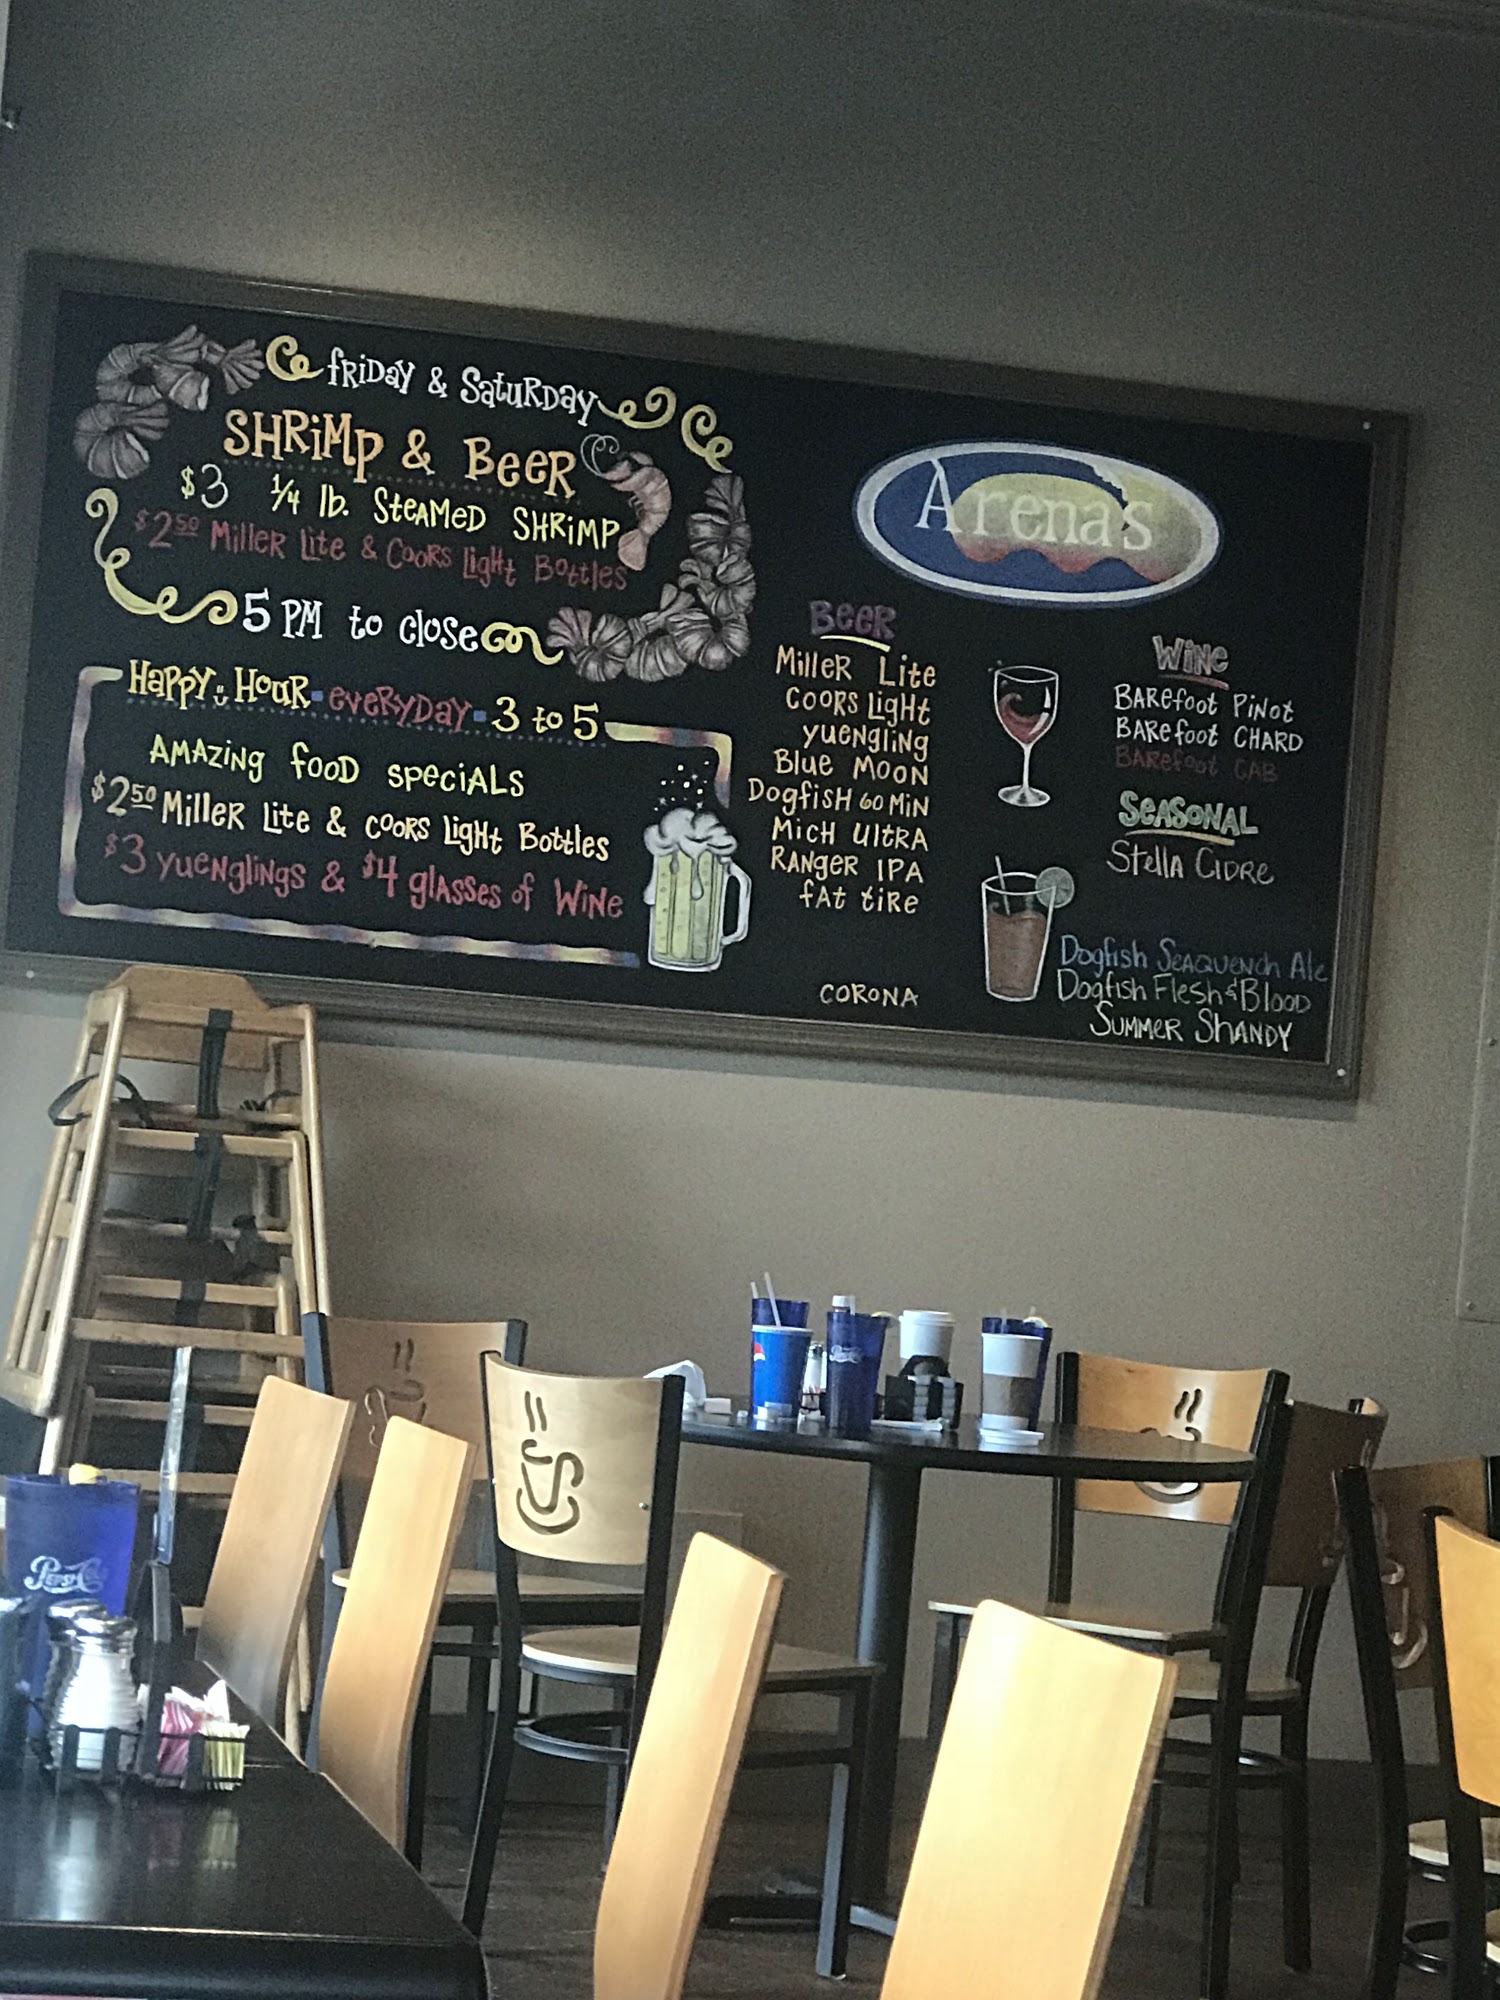 Friday & Saturday
Shrimp & Beer
$3 1/4 lb. Steamed Shrimp
$2.50 Miller Lite & Coors Light Bottles
5 PM to close
Happy Hour - everyday - 3 to 5
Amazing food specials
$2.50 Miller Lite & Coors Light Bottles
$3 yuenglings & $4 glasses of wine
Arena's
Beer
Miller Lite
Coors Light
yuengling
Blue Moon
Dogfish 60 Min
Mich Ultra
Ranger IPA
fat tire
Corona
Wine
Barefoot Pinot
Barefoot Chard
Barefoot Cab
Seasonal
Stella Cidre
Dogfish Seaquench Ale
Dogfish Flesh & Blood
Summer Shandy
Pepsi-Cola
Pepsi-Cola